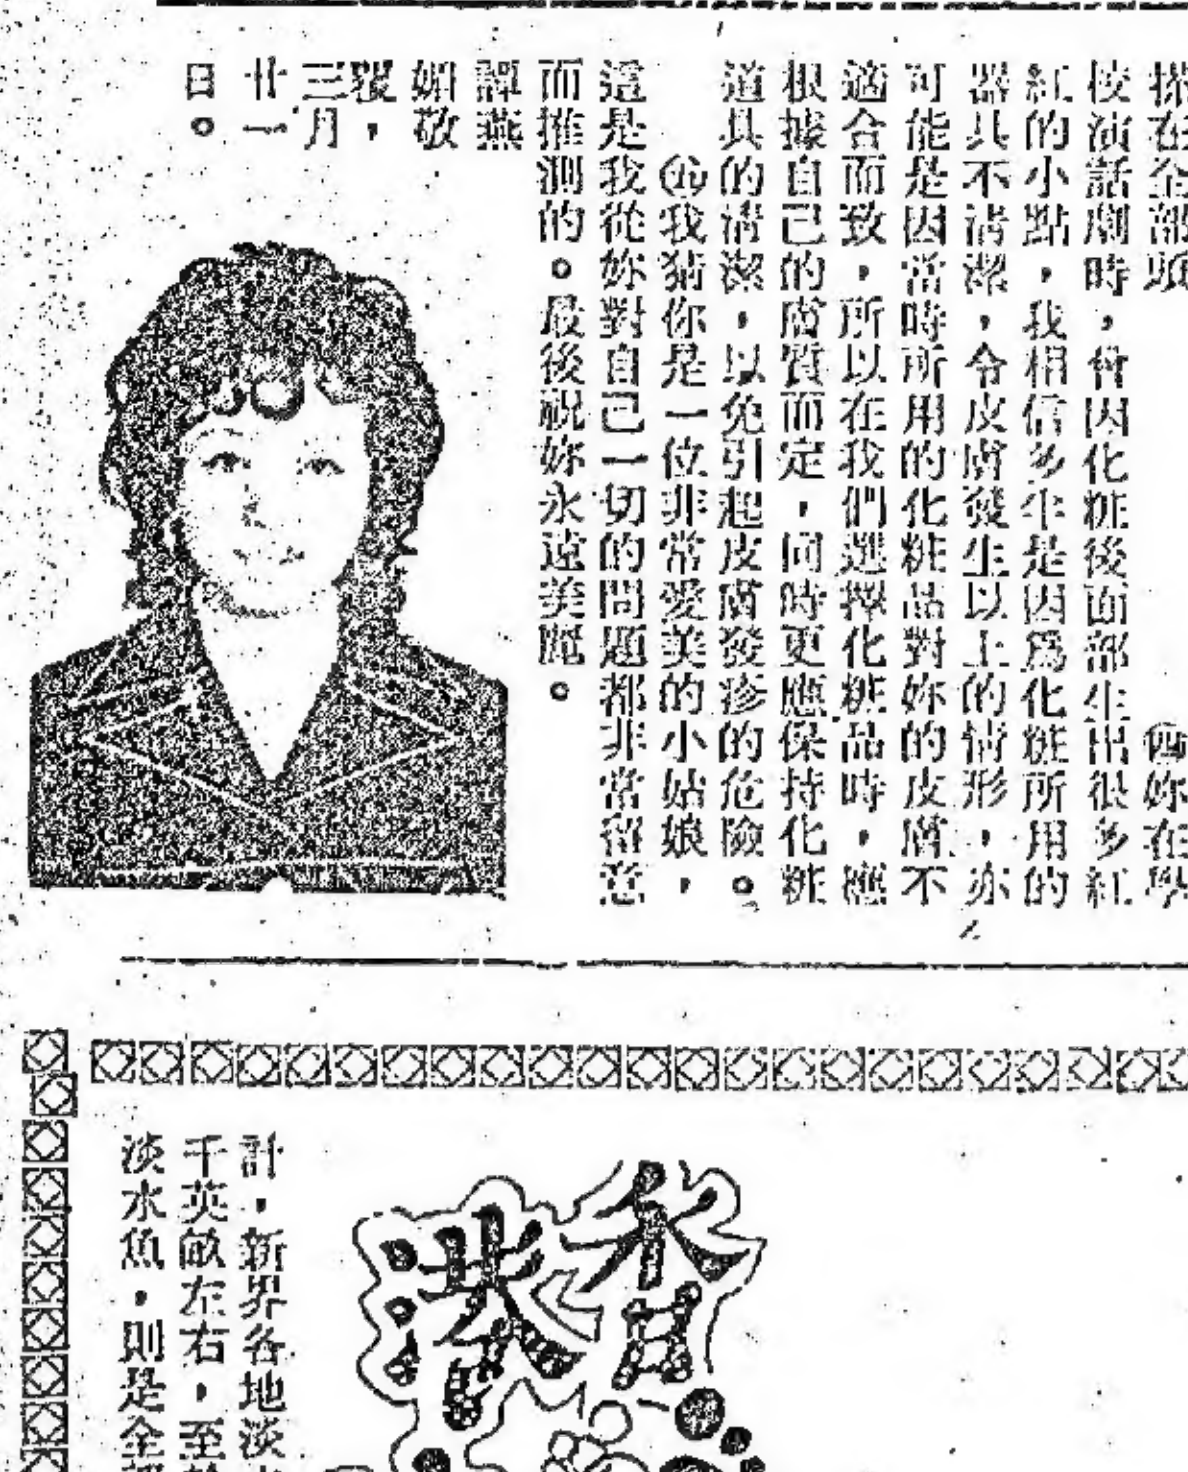 搽在全部頭
㈣妳在學
校演話劇時，會因化粧後面部生出很多紅
紅的小點，我相信多半是因爲化粧所用的
器具不淸潔，令皮膚發生以上的情形，亦
可能是因當時所用的化粧品對妳的皮膚不
適合而致，所以在我們選擇化粧品時，應
根據自己的膚質而定，同時更應保持化粧
道具的淸潔，以免引起皮膚發疹的危險。
㈤我猜你是一位非常愛美的小姑娘，
這是我從妳對自己一切的問題都非常留意
而推測的。最後祝妳永遠美麗。
譚燕
媚敬
覆，
三月
廿一
日。
香港
計，新界各地淡水
千英畝左右，至於
淡水魚，則是全部